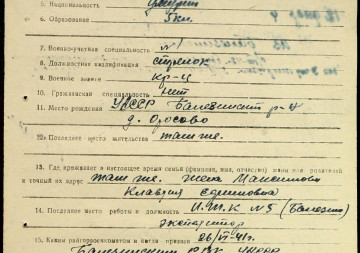 5. Национальность
6. Образование 5 кл.
7. Военно-учетная специальность №1
8. Должностная квалификация стрелок
9. Военное звание кр-ц
10. Гражданская специальность нет
11. Место рождения УАССР Балезинский р-н
д. Оросово
12. Последнее место жительства там же.
13. Где проживает в настоящее время семья (фамилия, имя, отчество) жены или родителей
и точный их адрес там же. жена Максимова
Клавдия Семиновна
14. Последнее место работы и должность И.Т.К №5 (Балезино)
экспедитор
15. Каким райгорвоенкоматом и когда призван 26/VI-41г.
Балезинским РВК УАССР